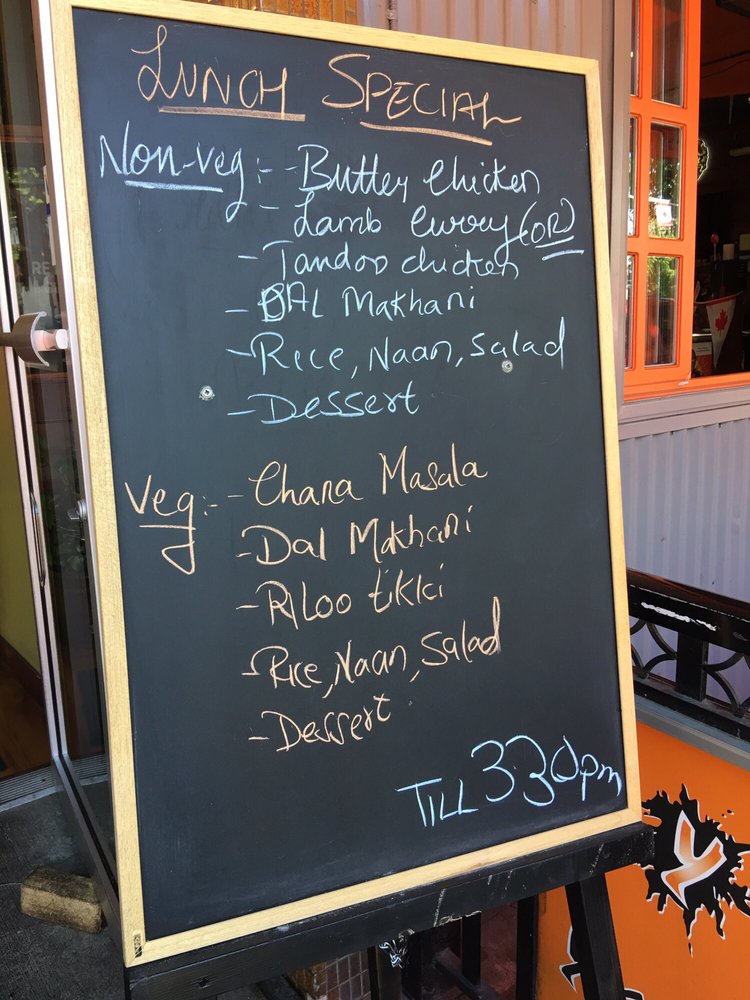 LUNCH SPECIAL
Non-veg:- - Butter Chicken
- Lamb Curry (OR)
- Tandoo chicken
- DAL Makhani
- Rice, Naan, Salad
- Dessert
Veg:- - Chana Masala
- Dal Makhani
- Aloo tikki
- Rice, Naan, Salad
- Dessert
TILL 330pm